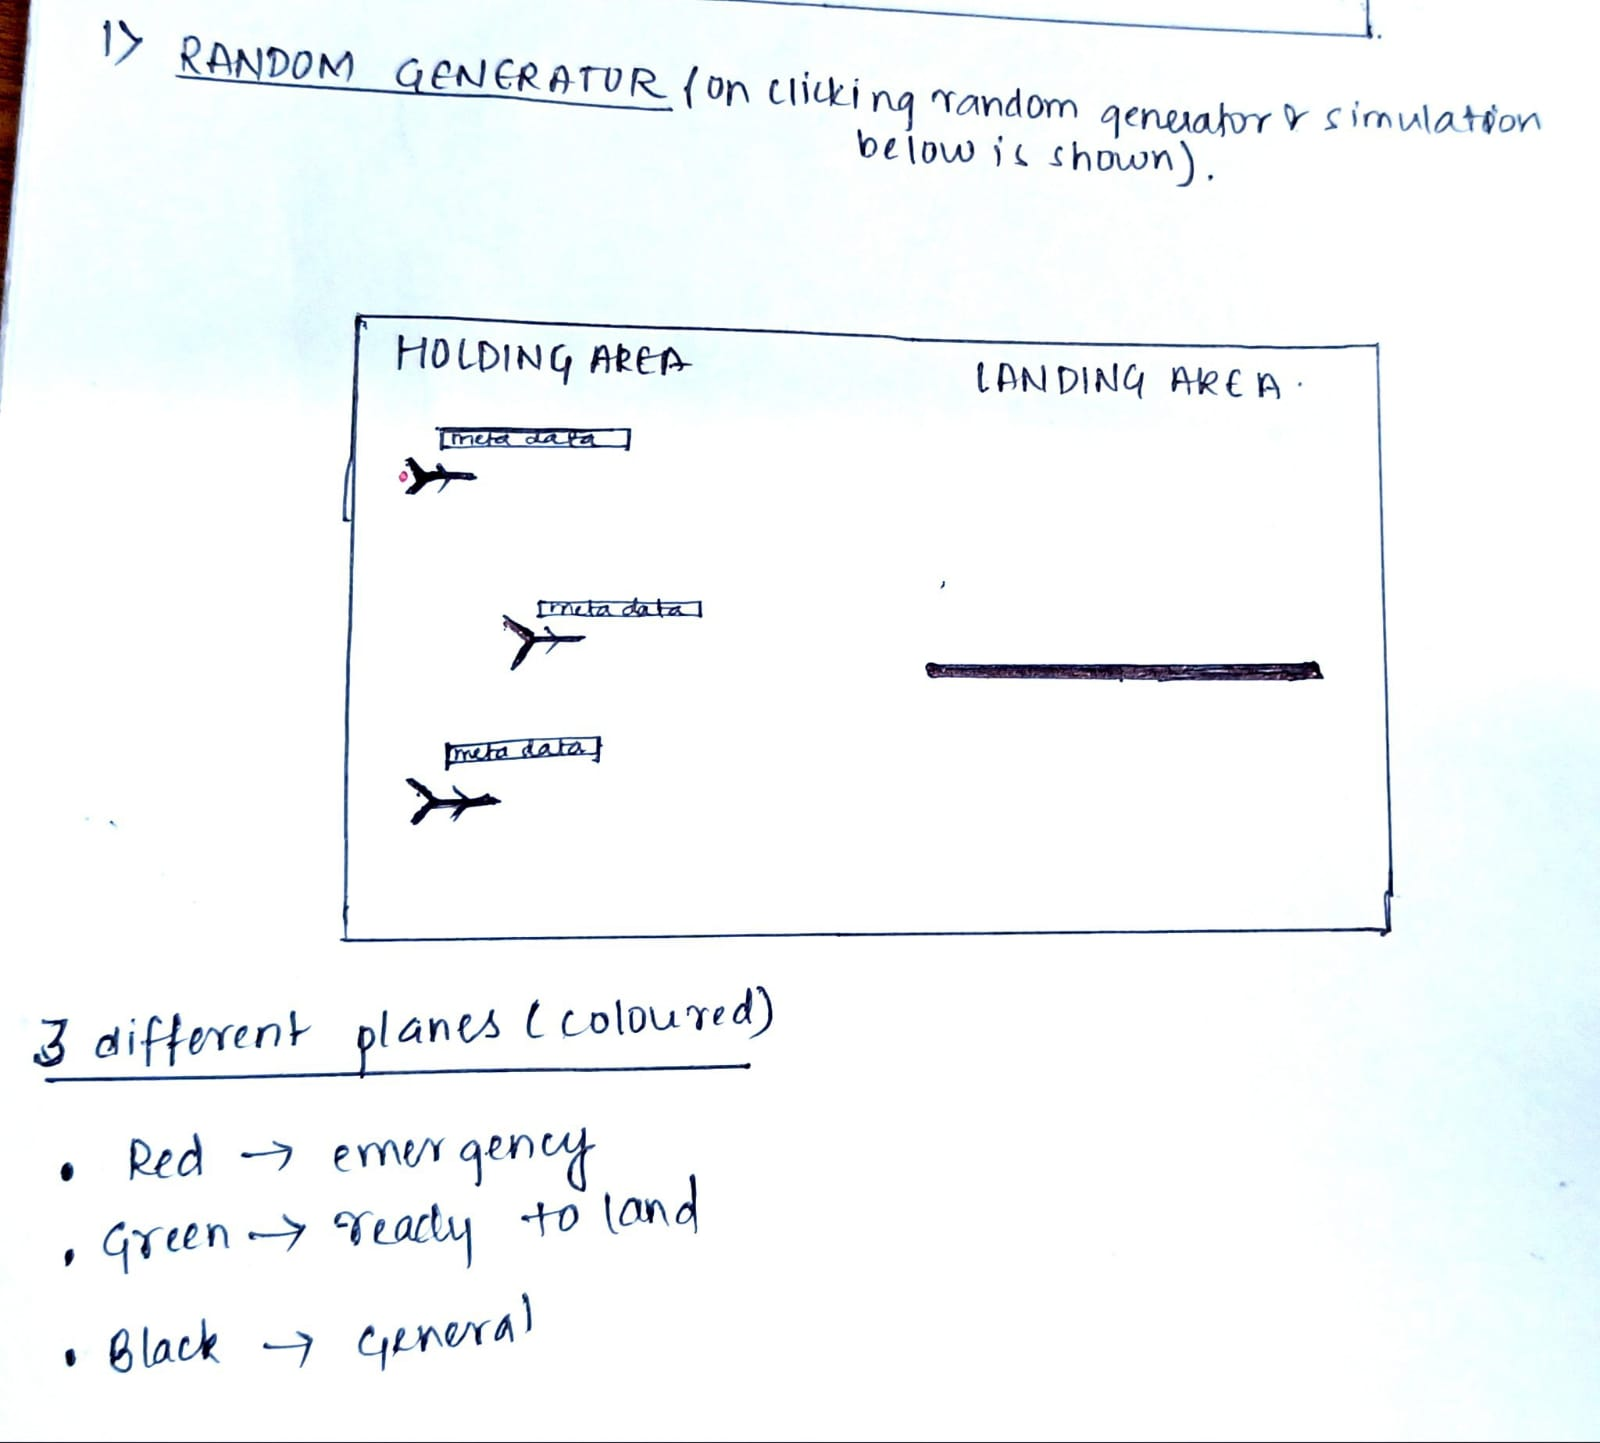 1> RANDOM GENERATOR (on clicking random generator & simulation
below is shown).
HOLDING AREA
LANDING AREA.
meta data
meta data
meta data
3 different planes (coloured)
• Red → emergency
• Green → ready to land
• Black → General